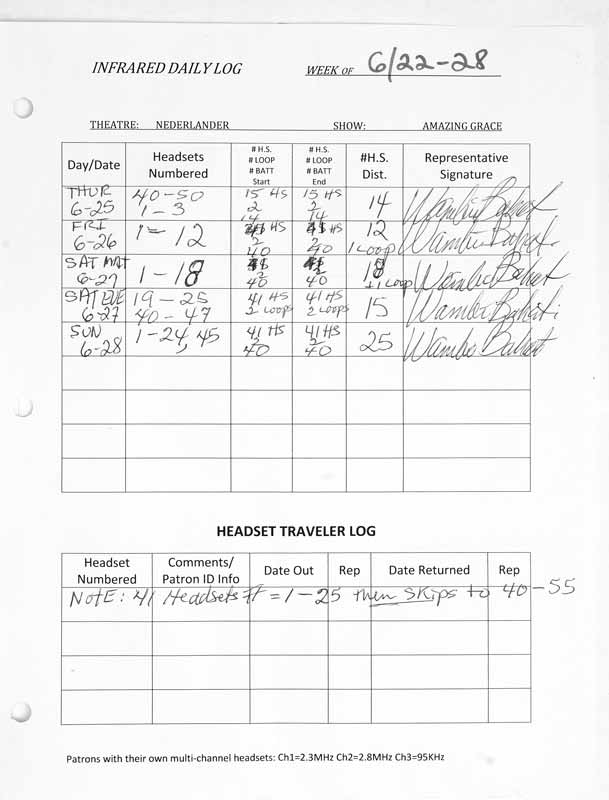 INFRARED DAILY LOG WEEK OF 6/22-28
THEATRE: NEDERLANDER SHOW: AMAZING GRACE
Day/Date Headsets Numbered # H.S. # LOOP # BATT Start # H.S. # LOOP # BATT End #H.S. Dist. Representative Signature
THUR 6-25 40-50 1-3 15 HS 2 14 15 HS 2 14 14
FRI 6-26 1- 12 HS 2 40 HS 2 40 12 1 Loop
SAT MAT 6-27 1-18 2 40 2 40 18 +1 Loop
SAT EVE 6-27 19-25 40-47 41 HS 2 Loops 41 HS 2 Loops 15
SUN 6-28 1-24, 45 41 HS 2 40 41 HS 2 40 25
HEADSET TRAVELER LOG
Headset Numbered Comments/ Patron ID Info Date Out Rep Date Returned Rep
NotE: 41 Headsets # = 1-25 then skips to 40-55
Patrons with their own multi-channel headsets: Ch1=2.3MHz Ch2=2.8MHz Ch3=95KHz